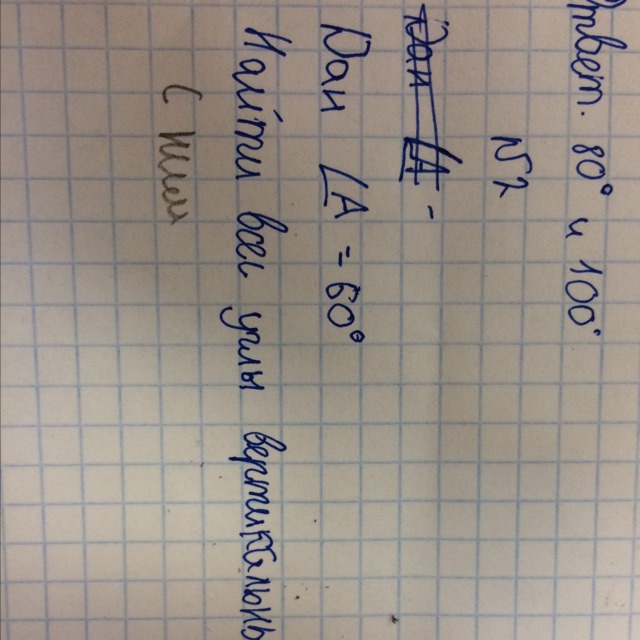 Ответ. 80° и 100°
№2
Дан ∠A = 60°
Найти все углы вертикальн
с ним